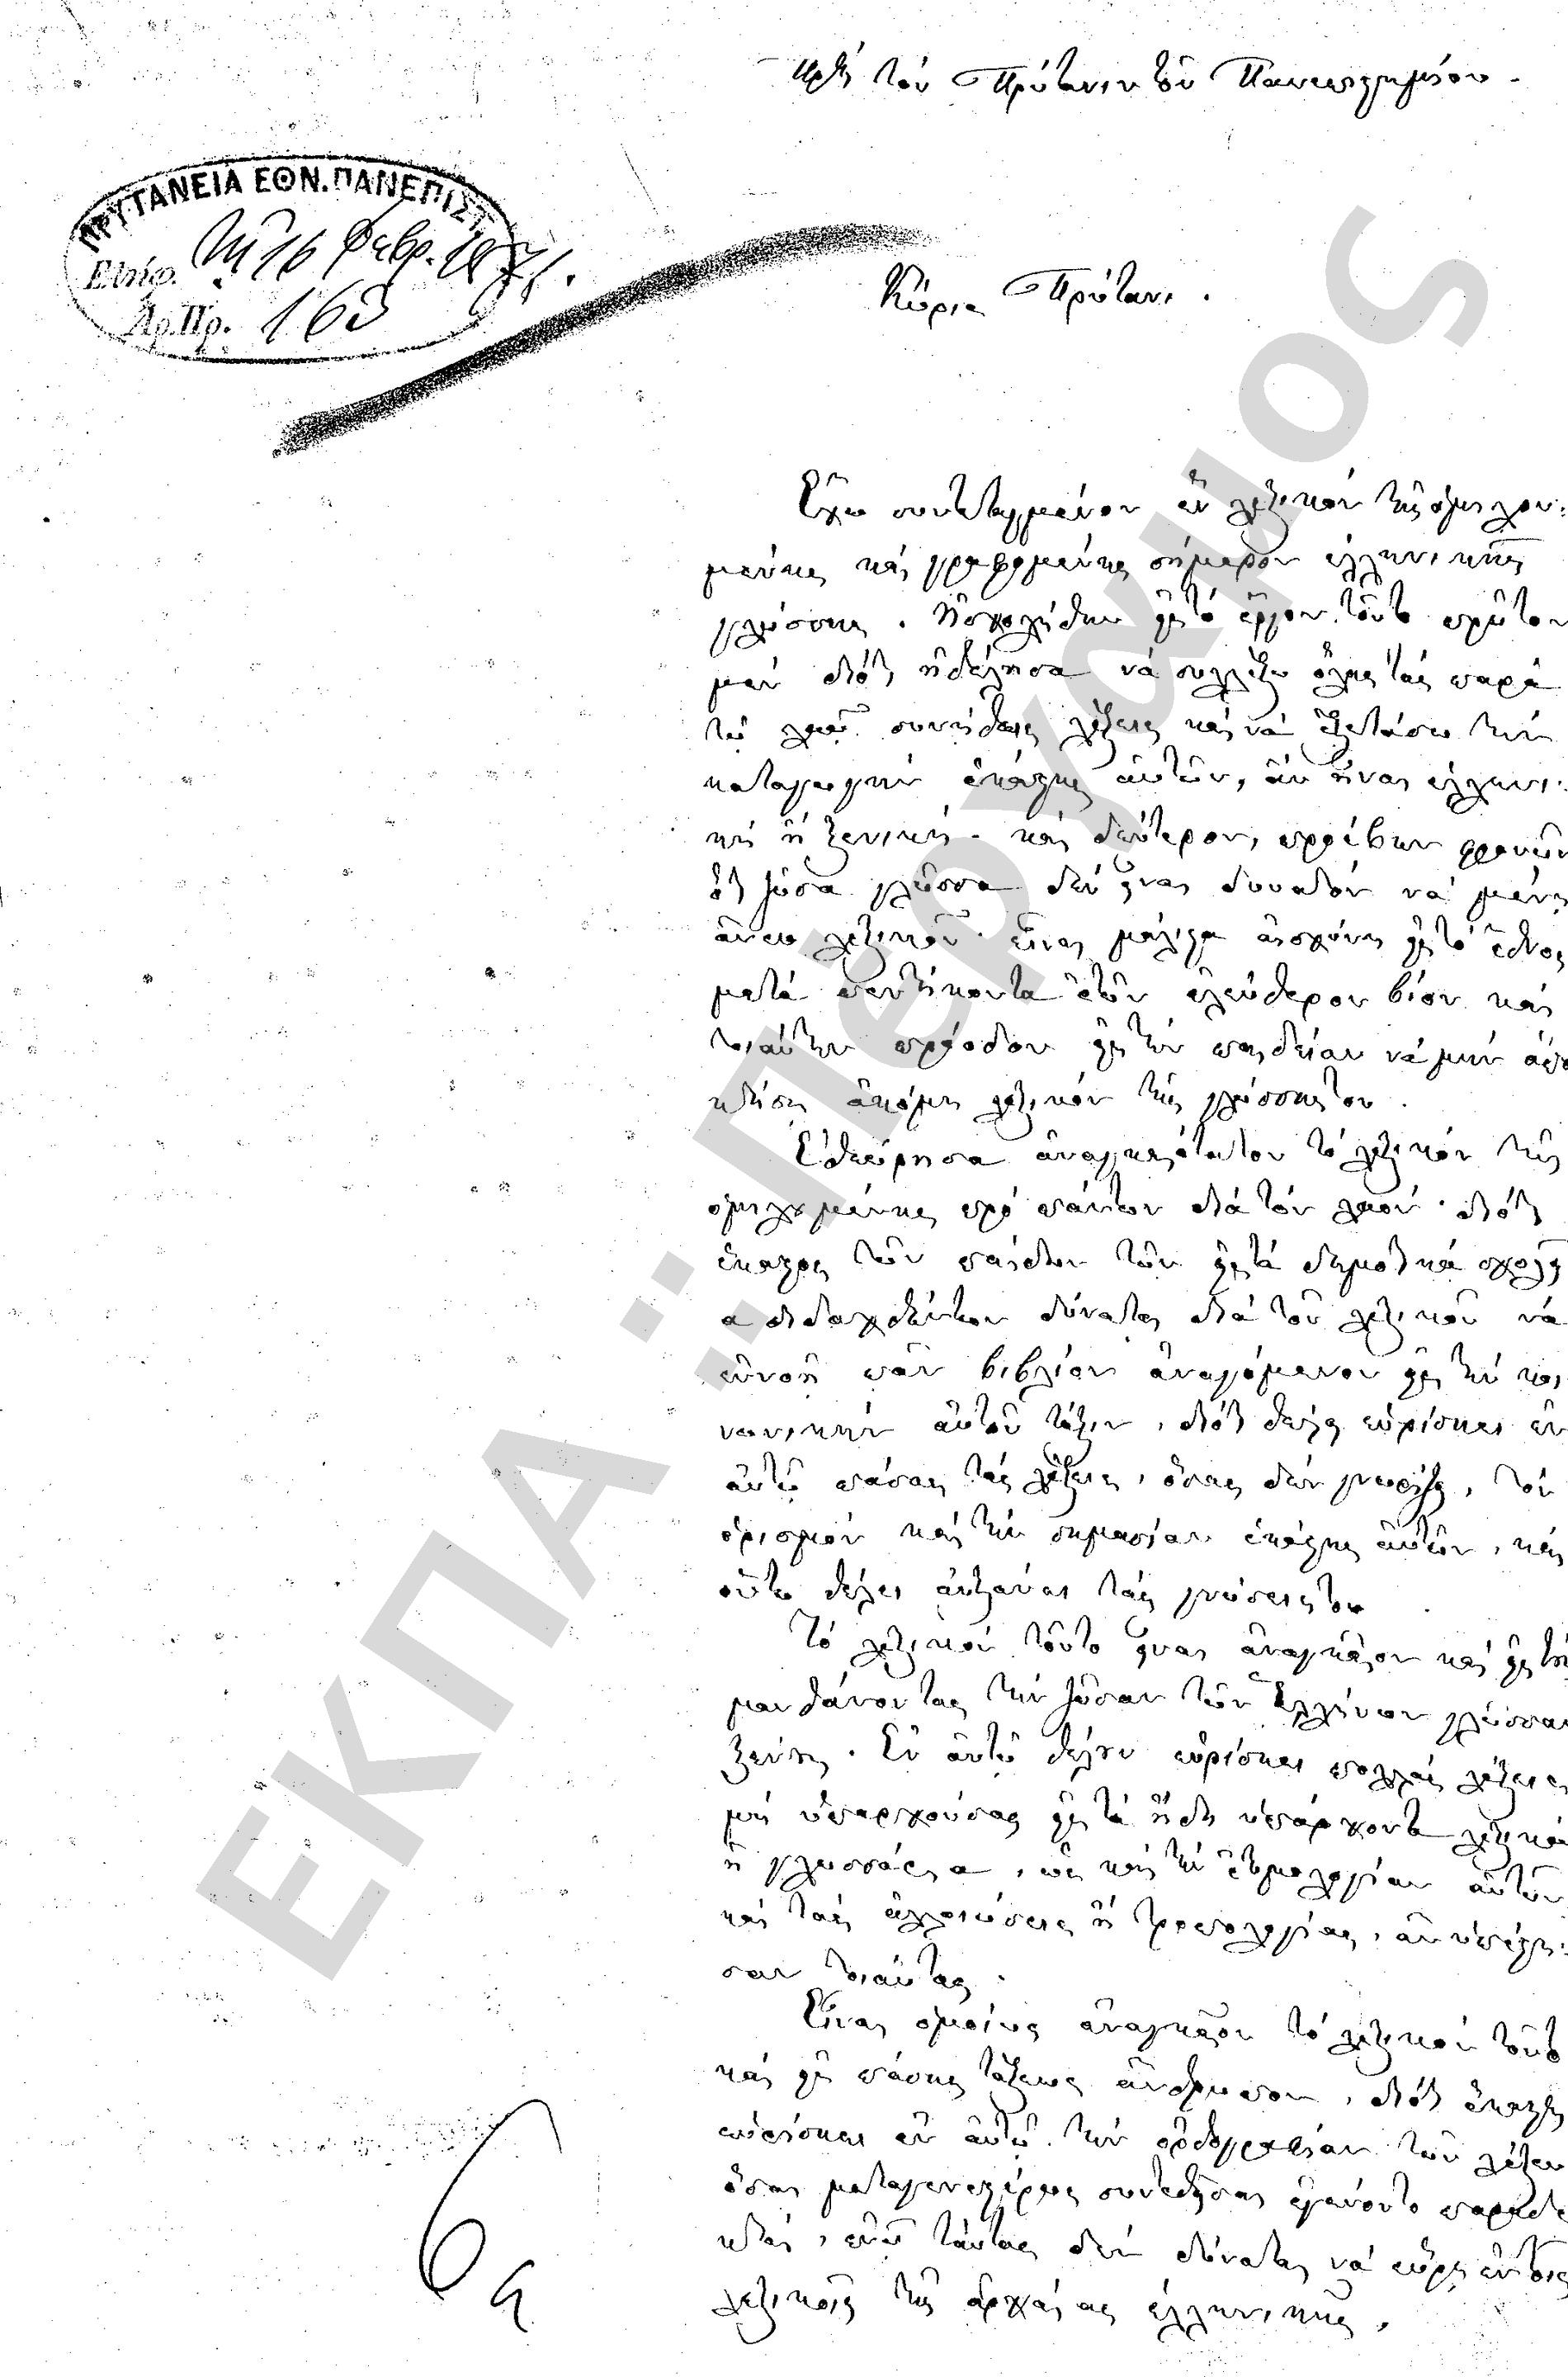 Πρὸς τὸν Πρύτανιν τοῦ Πανεπιστημίου.
ΠΡΥΤΑΝΕΙΑ ΕΘΝ. ΠΑΝΕΠΙΣΤ.
Ἐλήφ. τῇ 16 Φεβρ. 1871.
Ἀρ. Πρ. 163
Κύριε Πρύτανι.
Ἔχω συντεταγμένον ἓν λεξικὸν τῆς ὁμιλου-
μένης καὶ γραφομένης σήμερον ἑλληνικῆς
γλώσσης. Ἠσχολήθην εἰς τὸ ἔργον τοῦτο πρῶτον
μὲν διότι ἠθέλησα νὰ συλλέξω ὅλας τὰς παρὰ
τῷ λαῷ συνήθεις λέξεις καὶ νὰ ἐξετάσω τὴν
καταγωγὴν ἑκάστης αὐτῶν, ἂν ἦναι ἑλληνι-
κὴ ἢ ξενική· καὶ δεύτερον, φρονῶν
ὅτι ζῶσα γλῶσσα δὲν εἶναι δυνατὸν νὰ μένῃ
ἄνευ λεξικοῦ· εἶναι μάλιστα αἰσχύνη εἰς τὸ ἔθνος
μετὰ πεντήκοντα ἐτῶν ἐλεύθερον βίον καὶ
τοιαύτην πρόοδον εἰς τὴν παιδείαν νὰ μὴν ἀπο
κτήσῃ ἀκόμη λεξικὸν τῆς γλώσσης του.
Ἐθεώρησα ἀναγκαιότατον τὸ λεξικὸν τῆς
ὁμιλουμένης πρὸ πάντων διὰ τὸν λαόν· διότι
ἕκαστος τῶν παίδων τῶν εἰς τὰ δημοτικὰ σχολεῖ
α διδαχθέντων δύναται διὰ τοῦ λεξικοῦ νὰ
ἐννοῇ πᾶν βιβλίον ἀναγόμενον εἰς τὴν κοι
νωνικὴν αὐτοῦ τάξιν, διότι θέλει εὑρίσκει ἐν
αὐτῷ πάσας τὰς λέξεις, ὅσας δὲν γνωρίζει, τὸν
ὁρισμὸν καὶ τὴν σημασίαν ἑκάστης αὐτῶν, καὶ
οὕτω θέλει αὐξάνει τὰς γνώσεις του.
Τὸ λεξικὸν τοῦτο εἶναι ἀναγκαῖον καὶ εἰς τοὺς
μανθάνοντας τὴν ζῶσαν τῶν Ἑλλήνων γλῶσσαν
ξένους. Ἐν αὐτῷ θέλουν εὑρίσκει πολλὰς λέξεις
μὴ ὑπαρχούσας εἰς τὰ ἤδη ὑπάρχοντα λεξικὰ
ἢ γλωσσάρια, ὡς καὶ τὴν ἐτυμολογίαν αὐτῶν
καὶ τὰς ἀλλοιώσεις ἢ τροπολογίας, ἂν ὑπέστη-
σαν τοιαύτας.
Εἶναι ὁμοίως ἀναγκαῖον τὸ λεξικὸν τοῦτο
καὶ εἰς πάσης τάξεως ἄνθρωπον, διότι ἕκαστος
εὑρίσκει ἐν αὐτῷ τὴν ὀρθογραφίαν τῶν λέξεων
ὅσαι μεταγενεστέρως συντεθεῖσαι ἐγένοντο παραδε
κταί, ἐνῷ ταύτας δὲν δύναται νὰ εὕρῃ ἐν τοῖς
λεξικοῖς τῆς ἀρχαίας ἑλληνικῆς.
ΕΚΠΑ - Πέργαμος